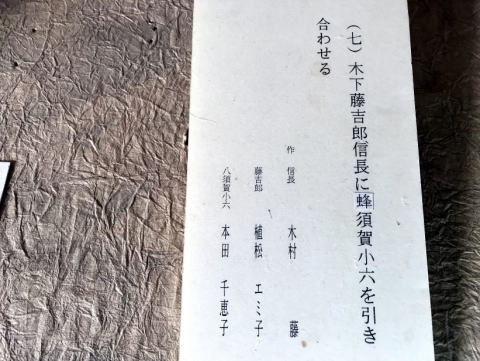 （七）木下藤吉郎信長に蜂須賀小六を引き
合わせる
作 信長 木村 藤
藤吉郎 植松 エミ子
八須賀小六 本田 千恵子